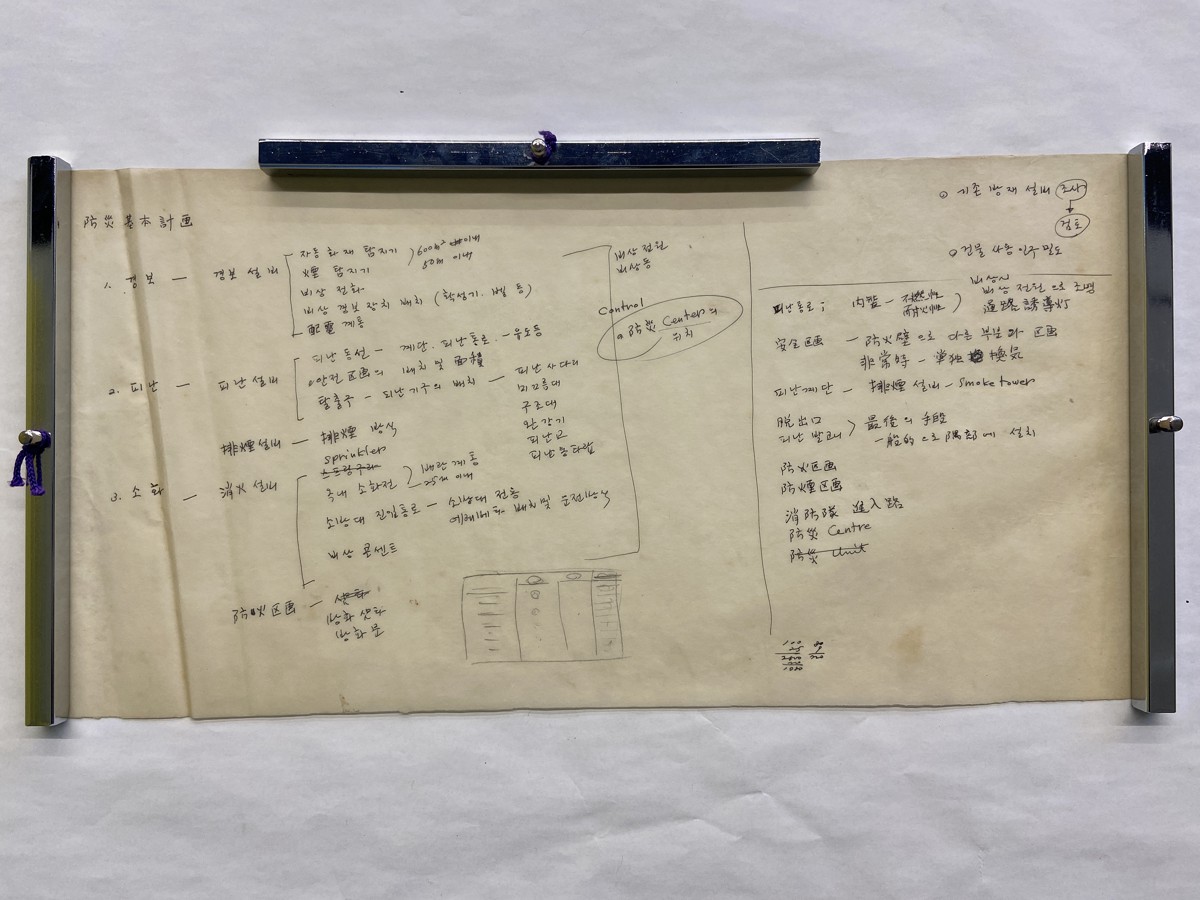 防災基本計画
1. 경보 — 경보 설비
자동 화재 탐지기
煙 탐지기
600m² 이내
50m 이내
비상 전화
비상 경보 장치 배치 (확성기. 벨 등)
配電 계통
2. 피난 — 피난 설비
피난 동선 — 계단. 피난통로. — 유도등
안전 区画의 배치 및 面積
탈출구 — 피난기구의 배치 — 피난 사다리
미끄럼대
구조대
완강기
피난교
피난승타랍
排煙 설비 — 排煙 방식
3. 소화 — 消火 설비
sprinkler
스프링구라
옥내 소화전
배관 계통
25m 이내
소방대 진입통로 — 소방대 전용
에레베타 배치 및 운전방식
비상 콘센트
防火区画 — 샷타
방화 샷타
방화 문
비상 전원
비상등
Control
防災 Center의
위치
기존 방재 설비 조사
검토
건물 사용 인구 밀도
피난통로; 内装 — 不燃性
耐火性
비상시
비상 전원으로 조명
通路誘導灯
安全区画 — 防火壁으로 다른 부분과 区画
非常時 — 単独 換気
피난계단 — 排煙 설비 — Smoke tower
脱出口
피난 발코니
最後의 手段
一般的으로 隅部에 설치
防火区画
防煙区画
消防隊 進入路
防災 Centre
防災 Unit